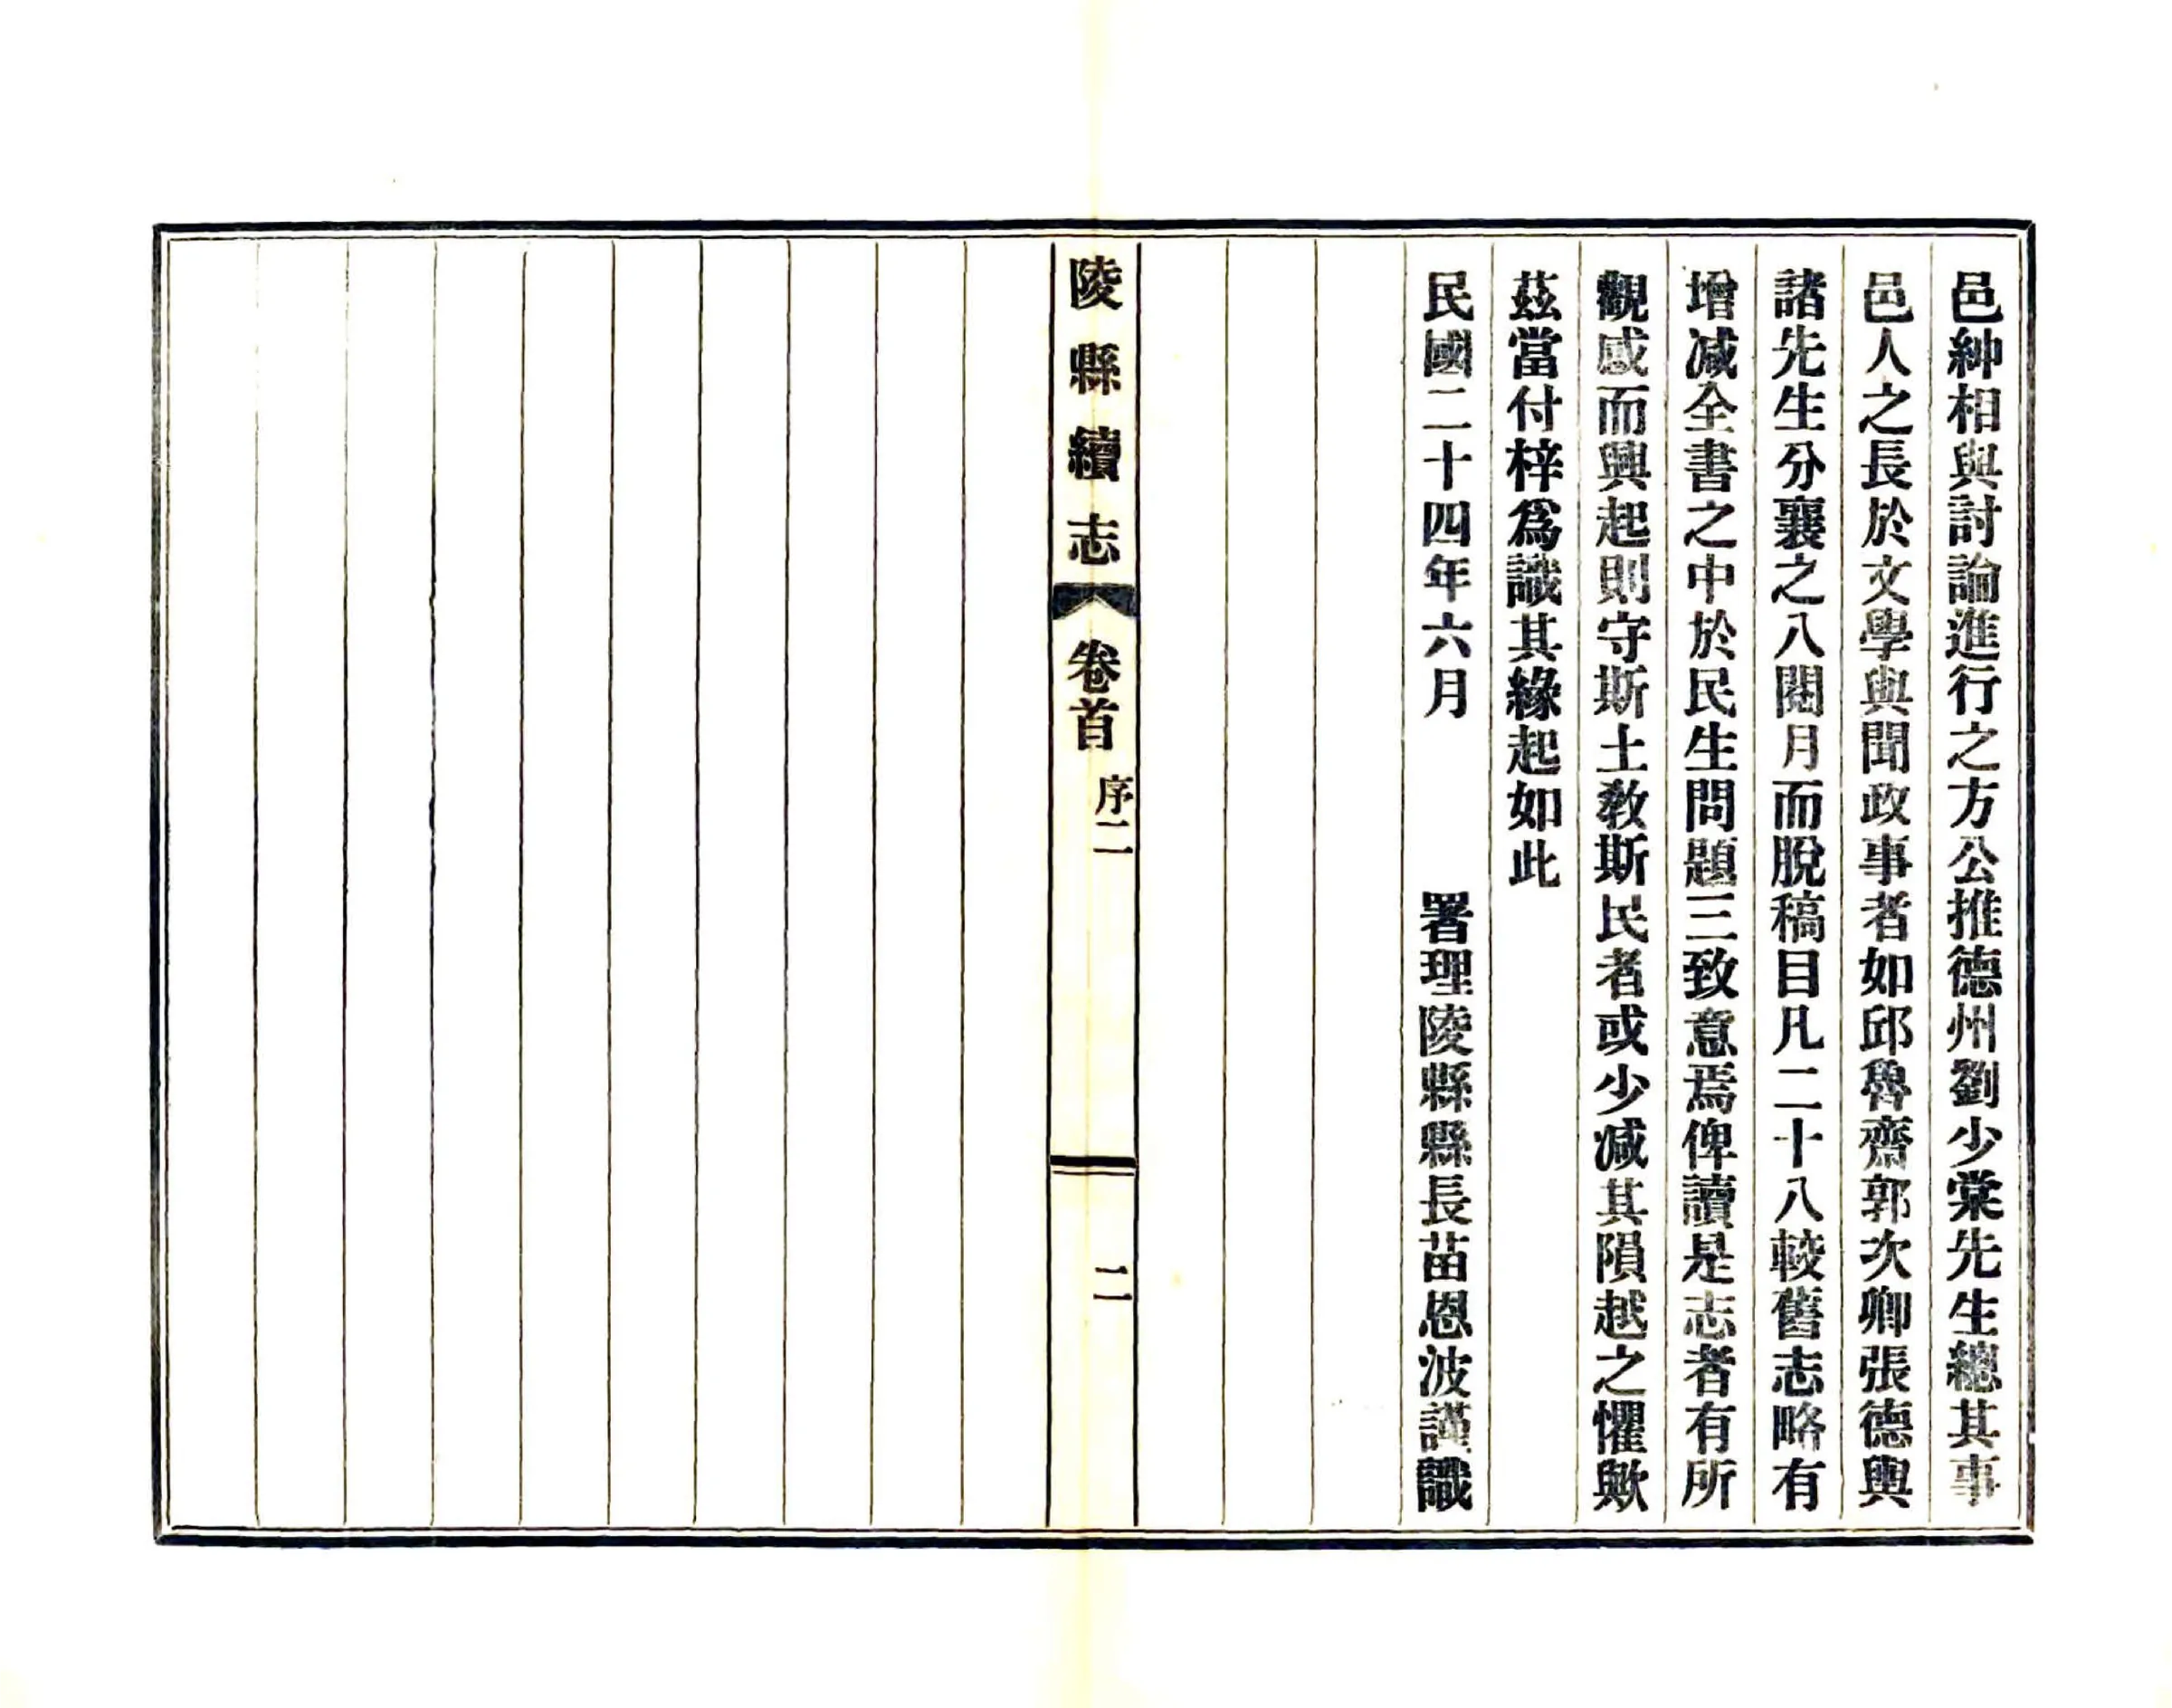 邑紳相與討論進行之方公推德州劉少棠先生總其事
邑人之長於文學與聞政事者如邱魯齋郭次卿張德輿
諸先生分襄之八閱月而脫稿目凡二十八較舊志略有
增減全書之中於民生問題三致意焉俾讀是志者有所
觀感而興起則守斯土教斯民者或少減其隕越之懼歟
茲當付梓爲識其緣起如此
民國二十四年六月 署理陵縣縣長苗恩波謹識
陵縣續志 卷首 序二 二